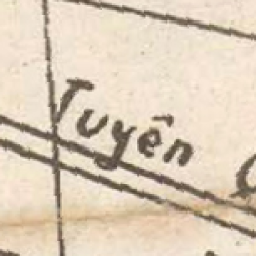 Tuyên